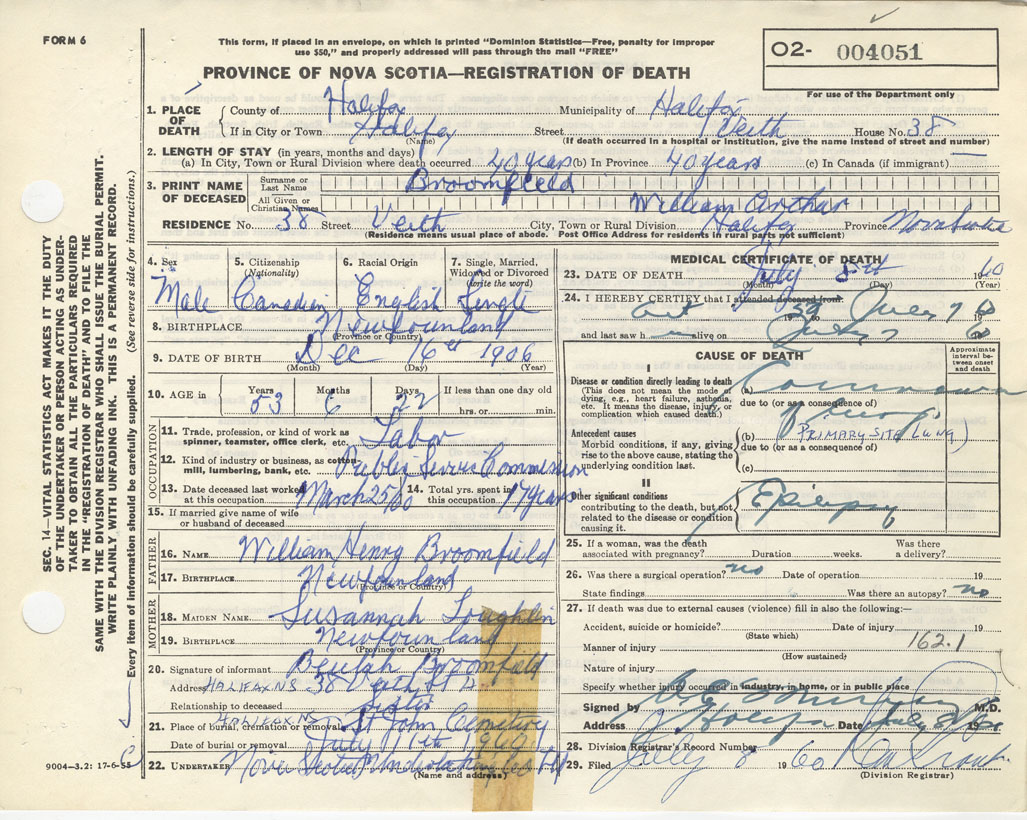 FORM 6
This form, if placed in an envelope, on which is printed "Dominion Statistics—Free, penalty for improper
use $50," and properly addressed will pass through the mail "FREE"
O2- 004051
For use of the Department only
PROVINCE OF NOVA SCOTIA—REGISTRATION OF DEATH
1. PLACE OF DEATH { County of Halifax Municipality of Halifax
If in City or Town Halifax Street Veith House No. 38
(Name) (If death occurred in a hospital or institution, give the name instead of street and number)
2. LENGTH OF STAY (in years, months and days)
(a) In City, Town or Rural Division where death occurred 40 years (b) In Province 40 years (c) In Canada (if immigrant) —
3. PRINT NAME OF DECEASED
Surname or Last Name Broomfield
All Given or Christian Names William Arthur
RESIDENCE No. 38 Street Veith City, Town or Rural Division Halifax Province Nova Scotia
(Residence means usual place of abode. Post Office Address for residents in rural parts not sufficient)
4. Sex 5. Citizenship (Nationality) 6. Racial Origin 7. Single, Married, Widowed or Divorced (write the word)
Male Canadian English Single
8. BIRTHPLACE Newfounland
(Province or Country)
9. DATE OF BIRTH Dec 16 1906
(Month) (Day) (Year)
10. AGE in Years Months Days If less than one day old
53 6 22 hrs. or min.
OCCUPATION
11. Trade, profession or kind of work as spinner, teamster, office clerk, etc. Labor
12. Kind of industry or business, as cotton-mill, lumbering, bank, etc. Public Commission
13. Date deceased last worked at this occupation March 25/60 14. Total yrs. spent in this occupation 17 years
15. If married give name of wife or husband of deceased
FATHER
16. NAME William Henry Broomfield
17. BIRTHPLACE Newfounland
(Province or Country)
MOTHER
18. MAIDEN NAME Susannah Loughlin
19. BIRTHPLACE Newfounland
(Province or Country)
20. Signature of informant Beulah Broomfield
Address HALIFAX NS 38 Veith St
Relationship to deceased
21. Place of burial, cremation or removal HALIFAX NS St John Cemetery
Date of burial or removal July 11th 1960
22. UNDERTAKER Nova Scotia Undertaking
(Name and address)
9004-3.2: 17-6-55
MEDICAL CERTIFICATE OF DEATH
23. DATE OF DEATH July 8th 1960
(Month) (Day) (Year)
24. I HEREBY CERTIFY that I attended deceased from:
59 to July 7
and last saw h alive on July 7
CAUSE OF DEATH
Approximate interval between onset and death
I
Disease or condition directly leading to death
(This does not mean the mode of dying, e.g., heart failure, asthenia, etc. It means the disease, injury, or complication which caused death.)
(a) Carcinoma
due to (or as a consequence of)
Antecedent causes
Morbid conditions, if any, giving rise to the above cause, stating the underlying condition last.
(b) (PRIMARY SITE LUNG)
due to (or as a consequence of)
(c)
II
Other significant conditions contributing to the death, but not related to the disease or condition causing it.
Epilepsy
25. If a woman, was the death associated with pregnancy? Duration weeks. Was there a delivery?
26. Was there a surgical operation? no Date of operation 19
State findings Was there an autopsy? no
27. If death was due to external causes (violence) fill in also the following:—
Accident, suicide or homicide? Date of injury 19
(State which)
Manner of injury 162.1
(How sustained)
Nature of injury
Specify whether injury occurred in industry, in home, or in public place
Signed by M.D.
Address Halifax Date July 8 19
28. Division Registrar's Record Number
29. Filed July 8 1960
(Division Registrar)
SEC. 14—VITAL STATISTICS ACT MAKES IT THE DUTY
OF THE UNDERTAKER OR PERSON ACTING AS UNDER-
TAKER TO OBTAIN ALL THE PARTICULARS REQUIRED
IN THE "REGISTRATION OF DEATH" AND TO FILE THE
SAME WITH THE DIVISION REGISTRAR WHO SHALL ISSUE THE BURIAL PERMIT.
WRITE PLAINLY WITH UNFADING INK. THIS IS A PERMANENT RECORD.
Every item of information should be carefully supplied. (See reverse side for instructions.)